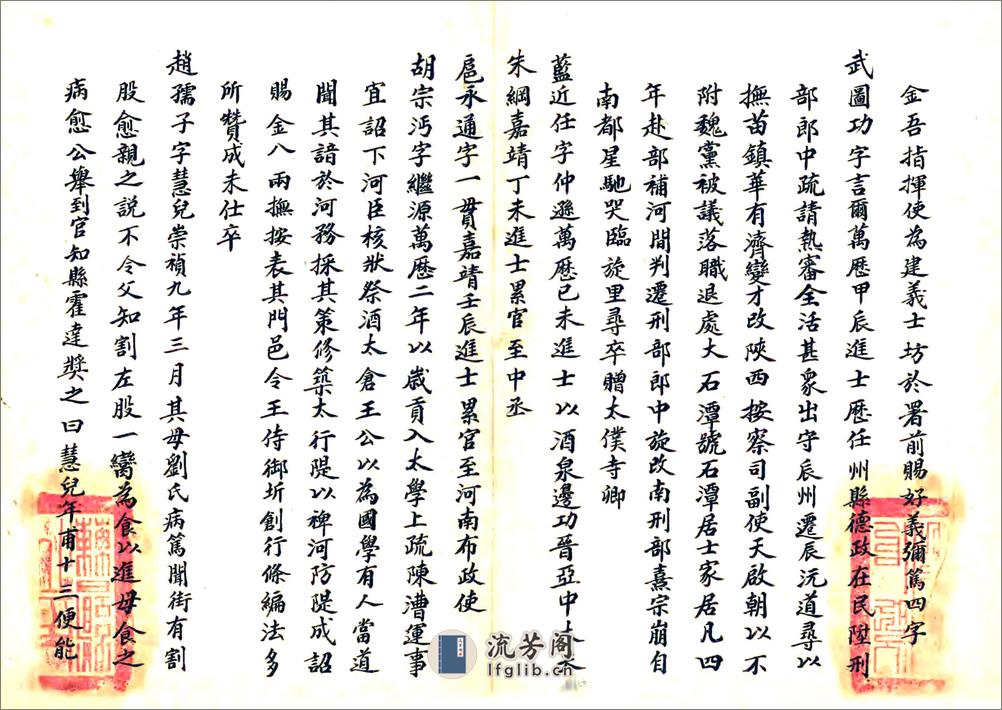 金吾指揮使為建義士坊於署前賜好義彌篤四字
武圖功字言爾萬歷甲辰進士歷任州縣德政在民陞刑
部郎中疏請熱審全活甚衆出守辰州遷辰沅道尋以
撫苗鎮華有濟變才改陝西按察司副使天啟朝以不
附魏黨被議落職退處大石潭號石潭居士家居凡四
年赴部補河間判遷刑部郎中旋改南刑部熹宗崩自
南都星馳哭臨旋里尋卒贈太僕寺卿
藍近任字仲遜萬歷已未進士以酒泉邊功晉亞中大夫
朱綱嘉靖丁未進士累官至中丞
扈永通字一貫嘉靖壬辰進士累官至河南布政使
胡宗沔字繼源萬歷二年以歲貢入太學上疏陳漕運事
宜詔下河臣核狀祭酒太倉王公以為國學有人當道
聞其諳於河務採其策修築太行隄以裨河防隄成詔
賜金八兩撫按表其門邑令王侍御圻創行條編法多
所贊成未仕卒
趙孺子字慧兒崇禎九年三月其母劉氏病篤聞街有割
股愈親之説不令父知割左股一臠為食以進母食之
病愈公舉到官知縣霍達獎之曰慧兒年甫十三便能
流芳阁
lfglib.cn